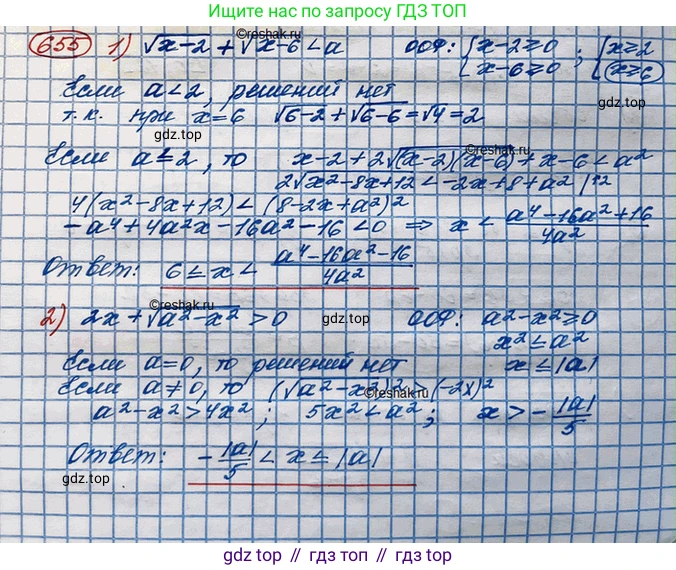 Ищите нас по запросу ГДЗ ТОП
655 1) √x-2 + √x-6 < a ООФ: {x-2≥0 x-6≥0 ; {x≥2 x≥6
©reshak.ru
Если a<2, решений нет
т.к. при x=6 √6-2+√6-6=√4=2
gdz.top
gdz.top
©reshak.ru
Если a≤2, то x-2+2√(x-2)(x-6)+x-6<a²
2√x²-8x+12<-2x+8+a² |↑2
4(x²-8x+12)<(8-2x+a²)²
-a⁴+4a²x-16a²-16<0 ⇒ x< a⁴-16a²+16 / 4a²
gdz.top
gdz.top
Ответ: 6≤x< a⁴-16a²-16 / 4a²
©reshak.ru
2) 2x+√a²-x²>0 ООФ: a²-x²≥0
gdz.top
x²≤a²
Если a=0, то решений нет x≤|a|
Если a≠0, то (√a²-x²)²>(-2x)²
©reshak.ru
a²-x²>4x² ; 5x²<a² ; x>- |a|/5
Ответ: - |a|/5 <x≤|a|
gdz.top
gdz.top
gdz.top // гдз.топ // гдз топ